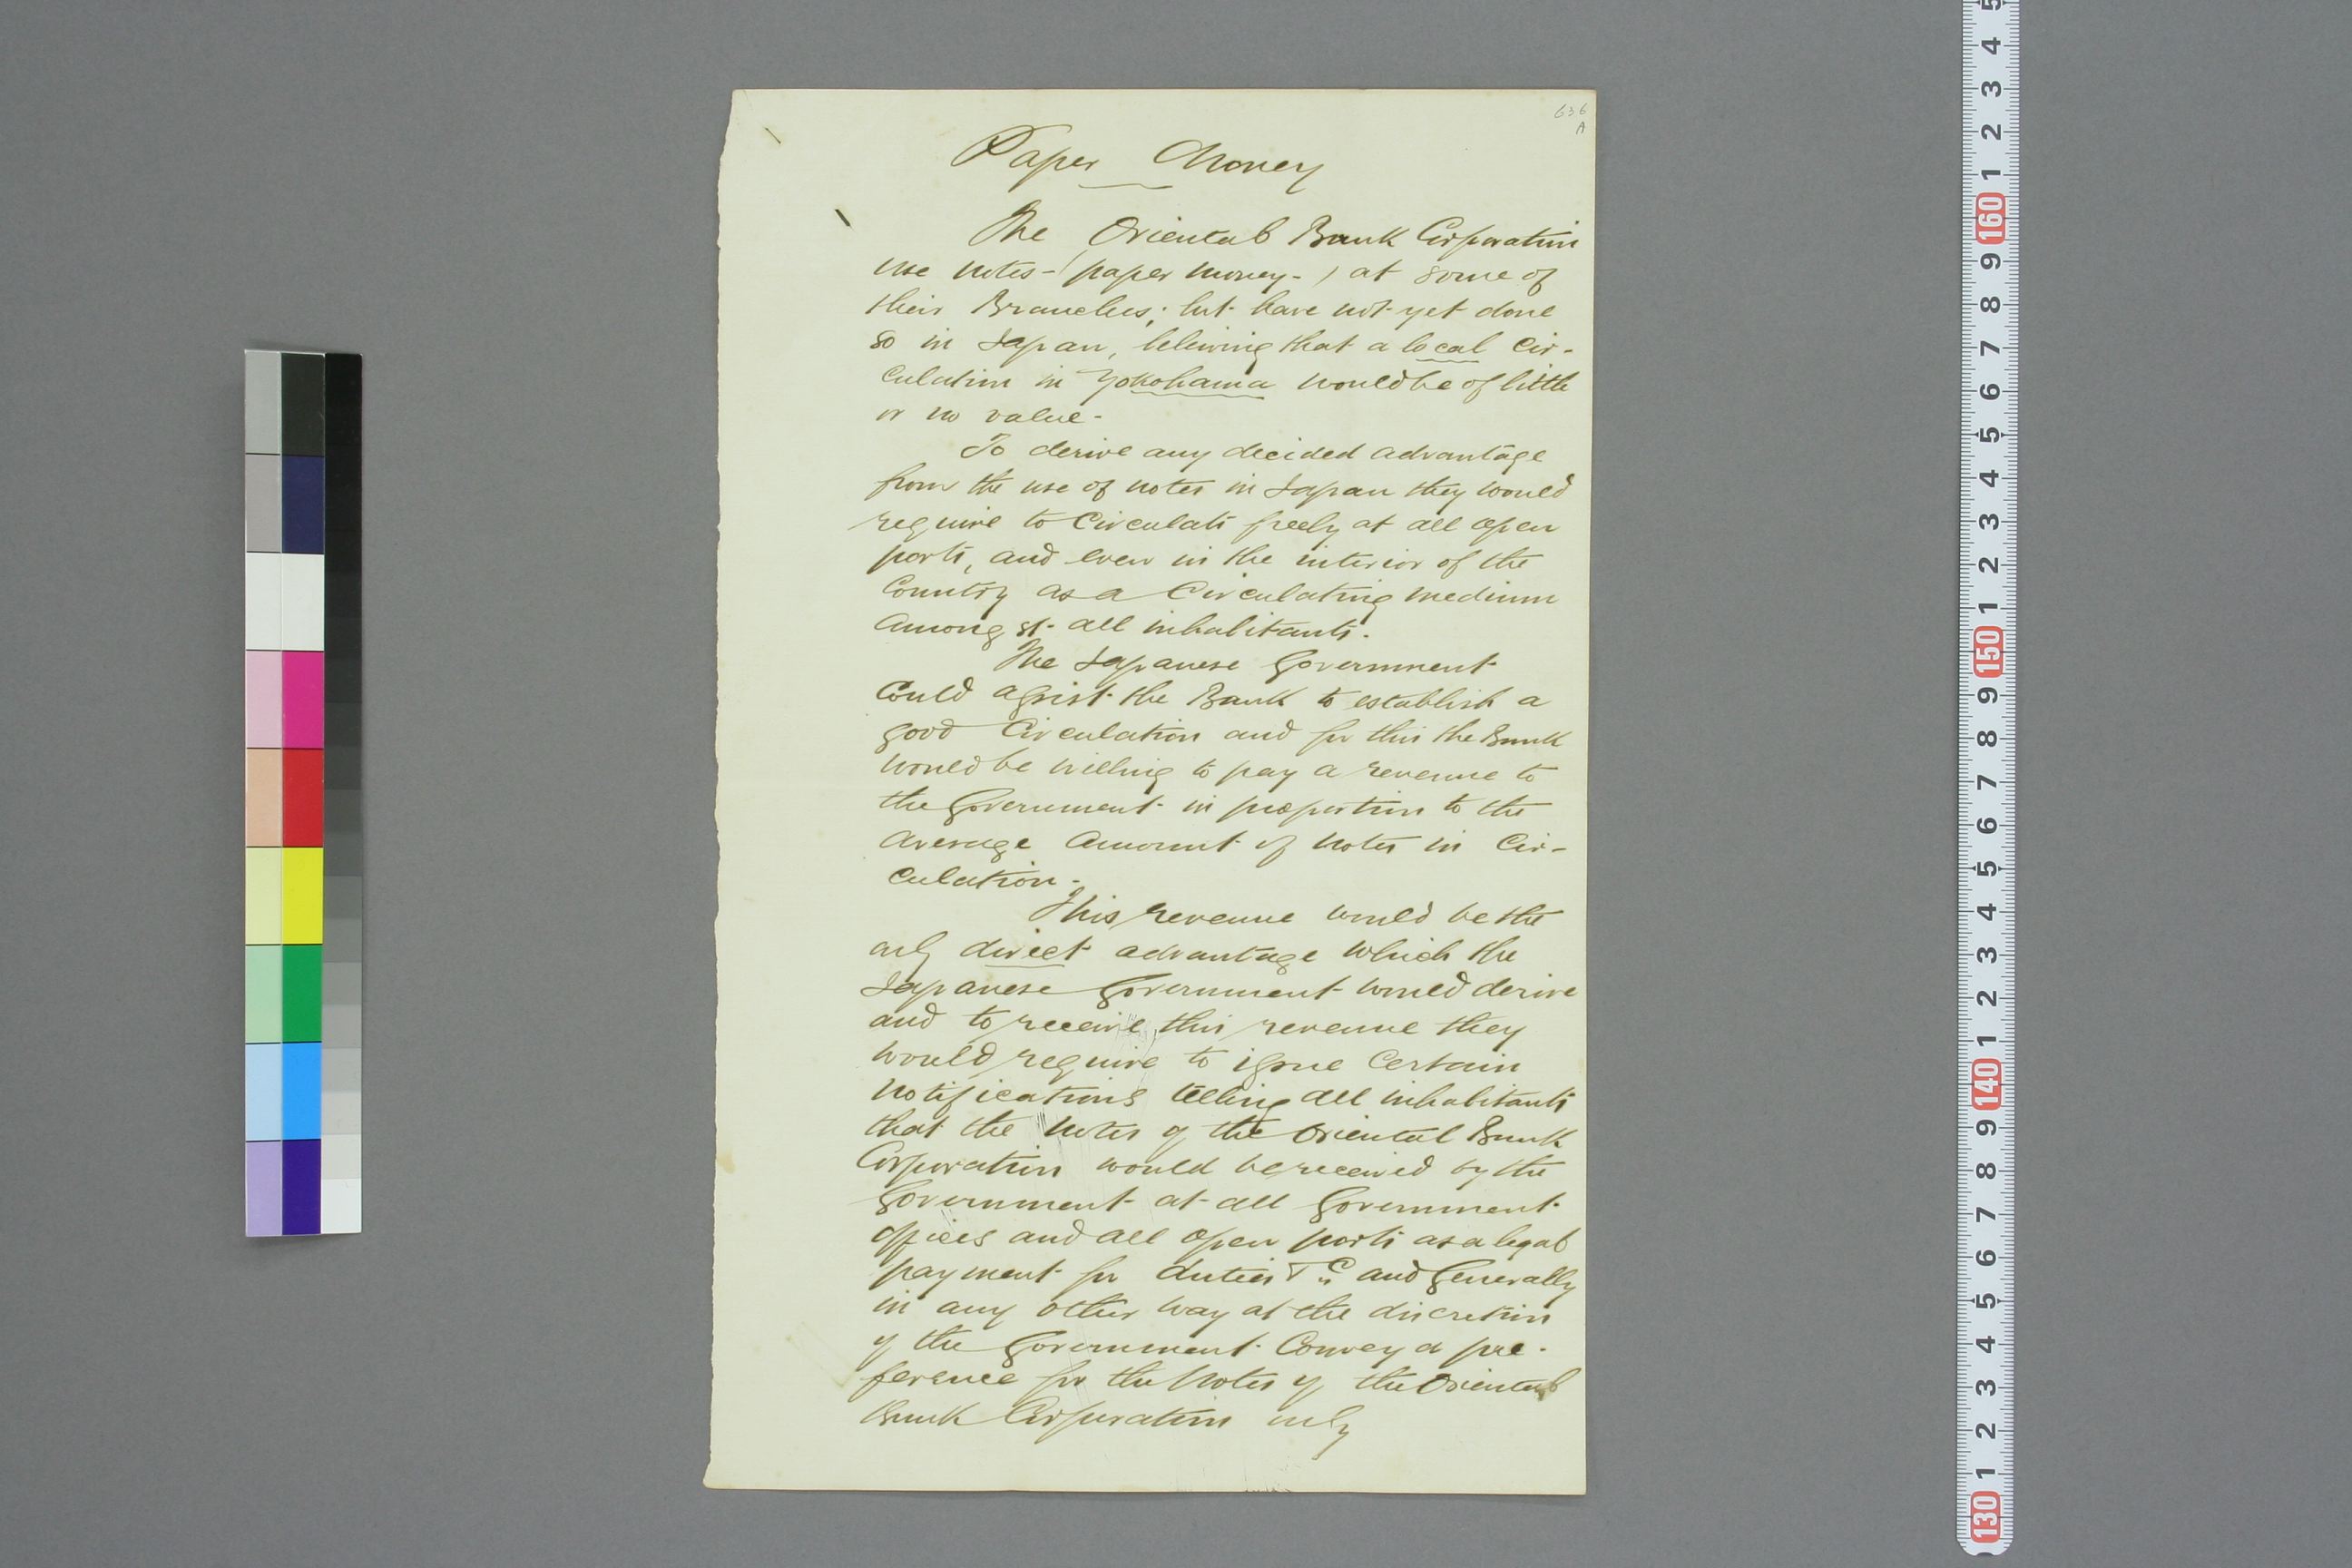 636
A
Paper Money
The Oriental Bank Corporation
use notes - (paper money - ) at some of
their Branches; but have not yet done
so in Japan, believing that a local cir-
culation in Yokohama would be of little
or no value -
To derive any decided advantage
from the use of notes in Japan they would
require to circulate freely at all open
ports, and even in the interior of the
Country as a Circulating medium
amongst all inhabitants.
The Japanese Government
could assist the Bank to establish a
good Circulation and for this the Bank
would be willing to pay a revenue to
the Government in proportion to the
average amount of notes in Cir-
culation -
This revenue would be the
only direct advantage which the
Japanese Government would derive
and to receive this revenue they
would require to issue Certain
notifications telling all inhabitants
that the notes of the Oriental Bank
Corporation would be received by the
Government at all Government
offices and all open ports as a legal
payment for duties &c. and Generally
in any other way at the discretion
of the Government Convey a pre-
ference for the Notes of the Oriental
Bank Corporation only
5
4
3
2
1
160
9
8
7
6
5
4
3
2
1
150
9
8
7
6
5
4
3
2
1
140
9
8
7
6
5
4
3
2
1
130